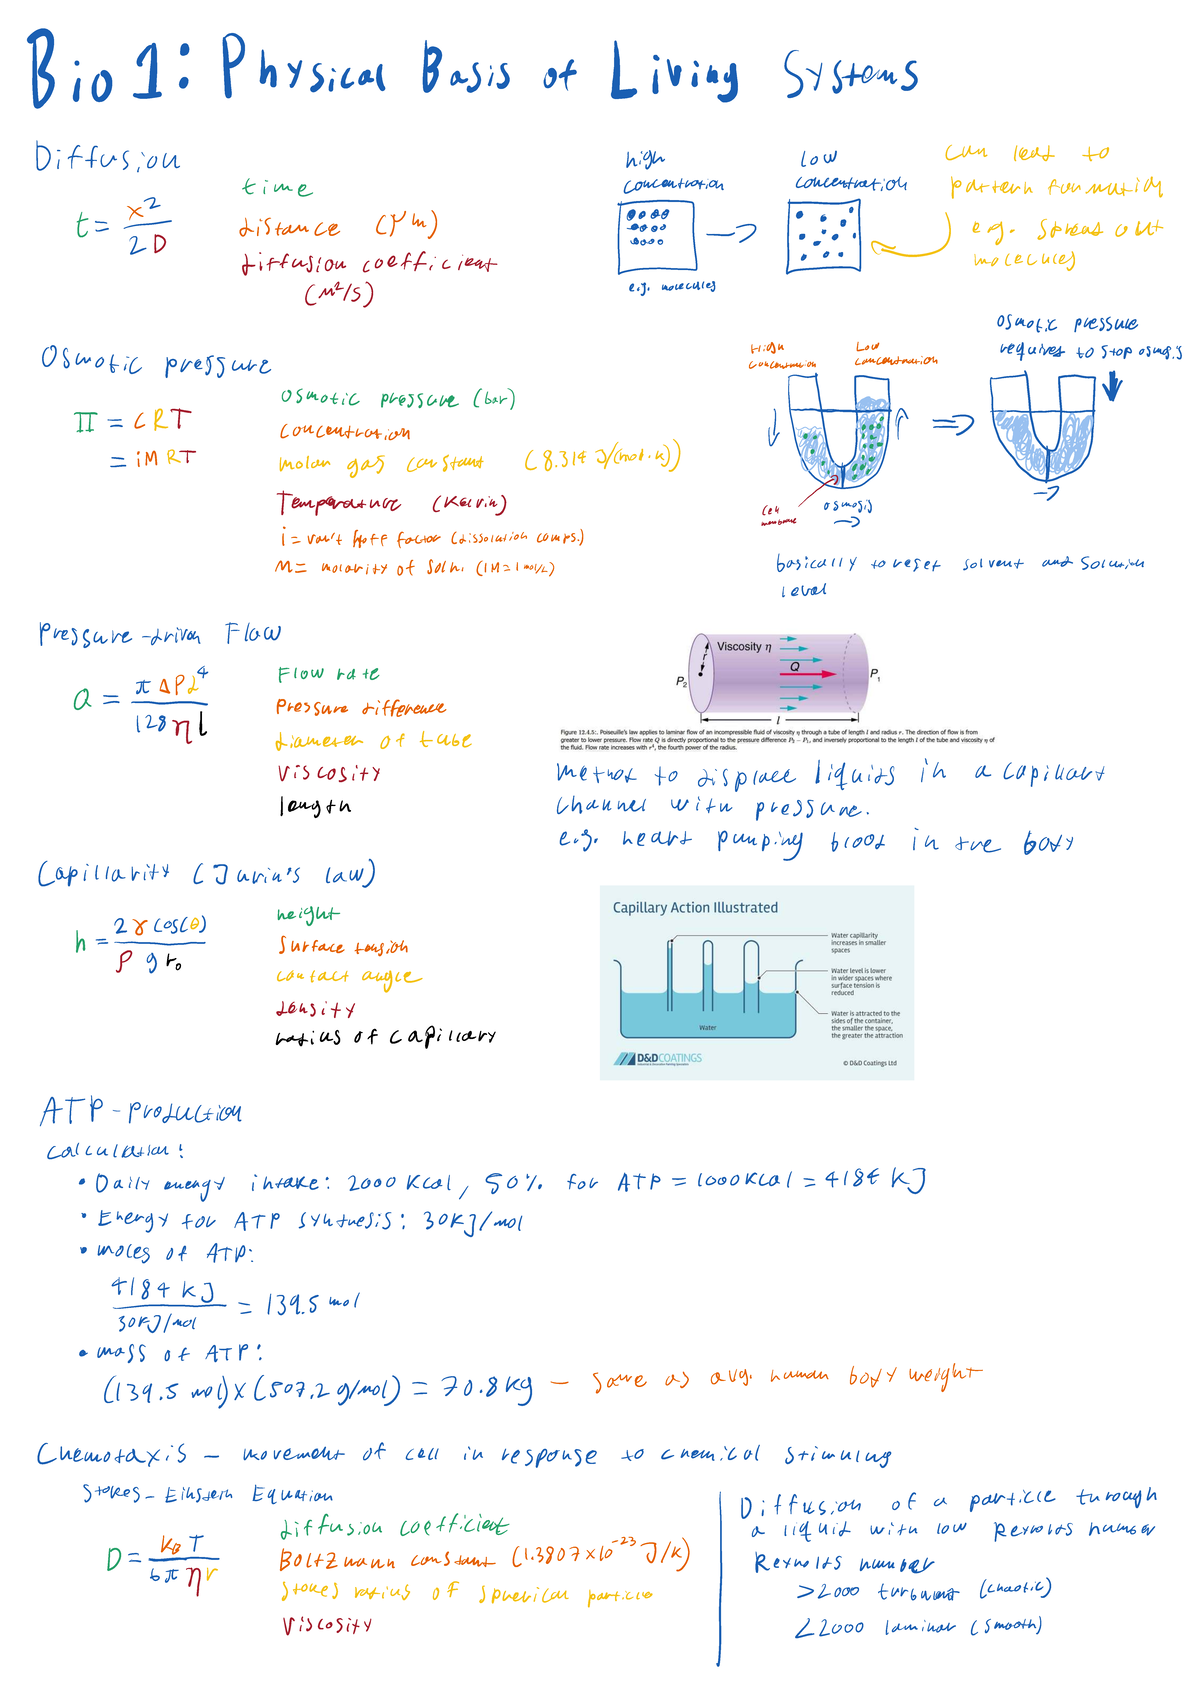 Bio 1: Physical Basis of Living Systems
Diffusion
t = x² / 2D
time
distance (μm)
diffusion coefficient
(m²/s)
high
concentration
e.g. molecules
low
concentration
can lead to
pattern formation
e.g. spread out
molecules
Osmotic pressure
Π = cRT
= iMRT
Osmotic pressure (bar)
concentration
molar gas constant (8.314 J/(mol·K))
Temperature (Kelvin)
i = van't Hoff factor (dissolution comps.)
M = molarity of soln. (1M = 1 mol/L)
High
concentration
Low
concentration
cell
membrane
osmosis
osmotic pressure
requires to stop osmosis
basically to reset solvent and solution
level
Pressure-driven Flow
Q = πΔPd⁴ / 128ηl
Flow rate
Pressure difference
diameter of tube
Viscosity
length
Viscosity η
r
Q
P₂
P₁
l
Figure 12.4.5: Poiseuille's law applies to laminar flow of an incompressible fluid of viscosity η through a tube of length l and radius r. The direction of flow is from
greater to lower pressure. Flow rate Q is directly proportional to the pressure difference P₂ − P₁, and inversely proportional to the length l of the tube and viscosity η of
the fluid. Flow rate increases with r⁴, the fourth power of the radius.
Method to displace liquids in a capillary
channel with pressure.
e.g. heart pumping blood in the body
Capillarity (Jurin's law)
h = 2γcos(θ) / ρ g r₀
height
Surface tension
contact angle
density
radius of capillary
Capillary Action Illustrated
Water capillarity
increases in smaller
spaces
Water level is lower
in wider spaces where
surface tension is
reduced
Water is attracted to the
sides of the container,
the smaller the space,
the greater the attraction
Water
D&D COATINGS
© D&D Coatings Ltd
ATP-production
Calculation:
• Daily energy intake: 2000 Kcal, 50% for ATP = 1000Kcal = 4184 KJ
• Energy for ATP synthesis: 30KJ/mol
• moles of ATP:
4184 KJ / 30KJ/mol = 139.5 mol
• mass of ATP:
(139.5 mol) x (507.2 g/mol) = 70.8 kg – same as avg. human body weight
Chemotaxis – movement of cell in response to chemical stimulus
Stokes-Einstein Equation
D = k_B T / 6πηr
diffusion coefficient
Boltzmann constant (1.3807×10⁻²³ J/K)
Stokes radius of spherical particle
Viscosity
Diffusion of a particle through
a liquid with low Reynolds number
Reynolds number
>2000 turbulent (chaotic)
<2000 laminar (smooth)